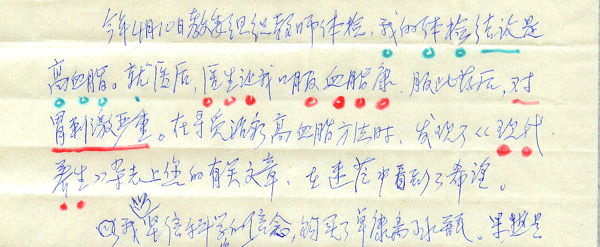 今年4月10日教委组织教师体检,我的体检结论是
高血脂。就医后,医生让我口服血脂康,服此药后,对
胃刺激严重。在寻觅治疗高血脂方法时,发现了《现代
养生》杂志上您的有关文章,在迷茫中看到了希望。
我坚信科学的信念,购买了 康 水瓶。果然是